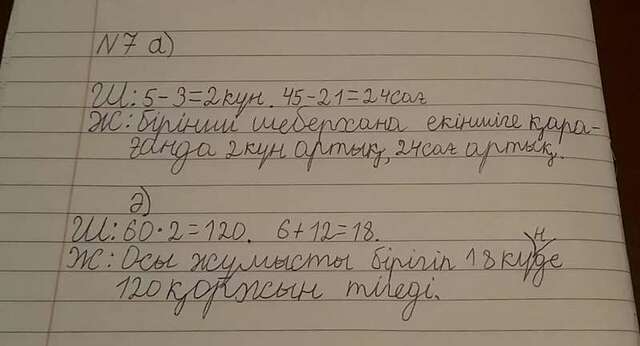 N7 а)
Ш: 5-3=2күн. 45-21=24сағ
Ж: Бірінші шеберхана екіншіге қара-
ғанда 2күн артық, 24сағ артық.
ә)
Ш: 60·2=120. 6+12=18.
Ж: Осы жұмысты бірігіп 18 күнде
120 қоржын тігеді.